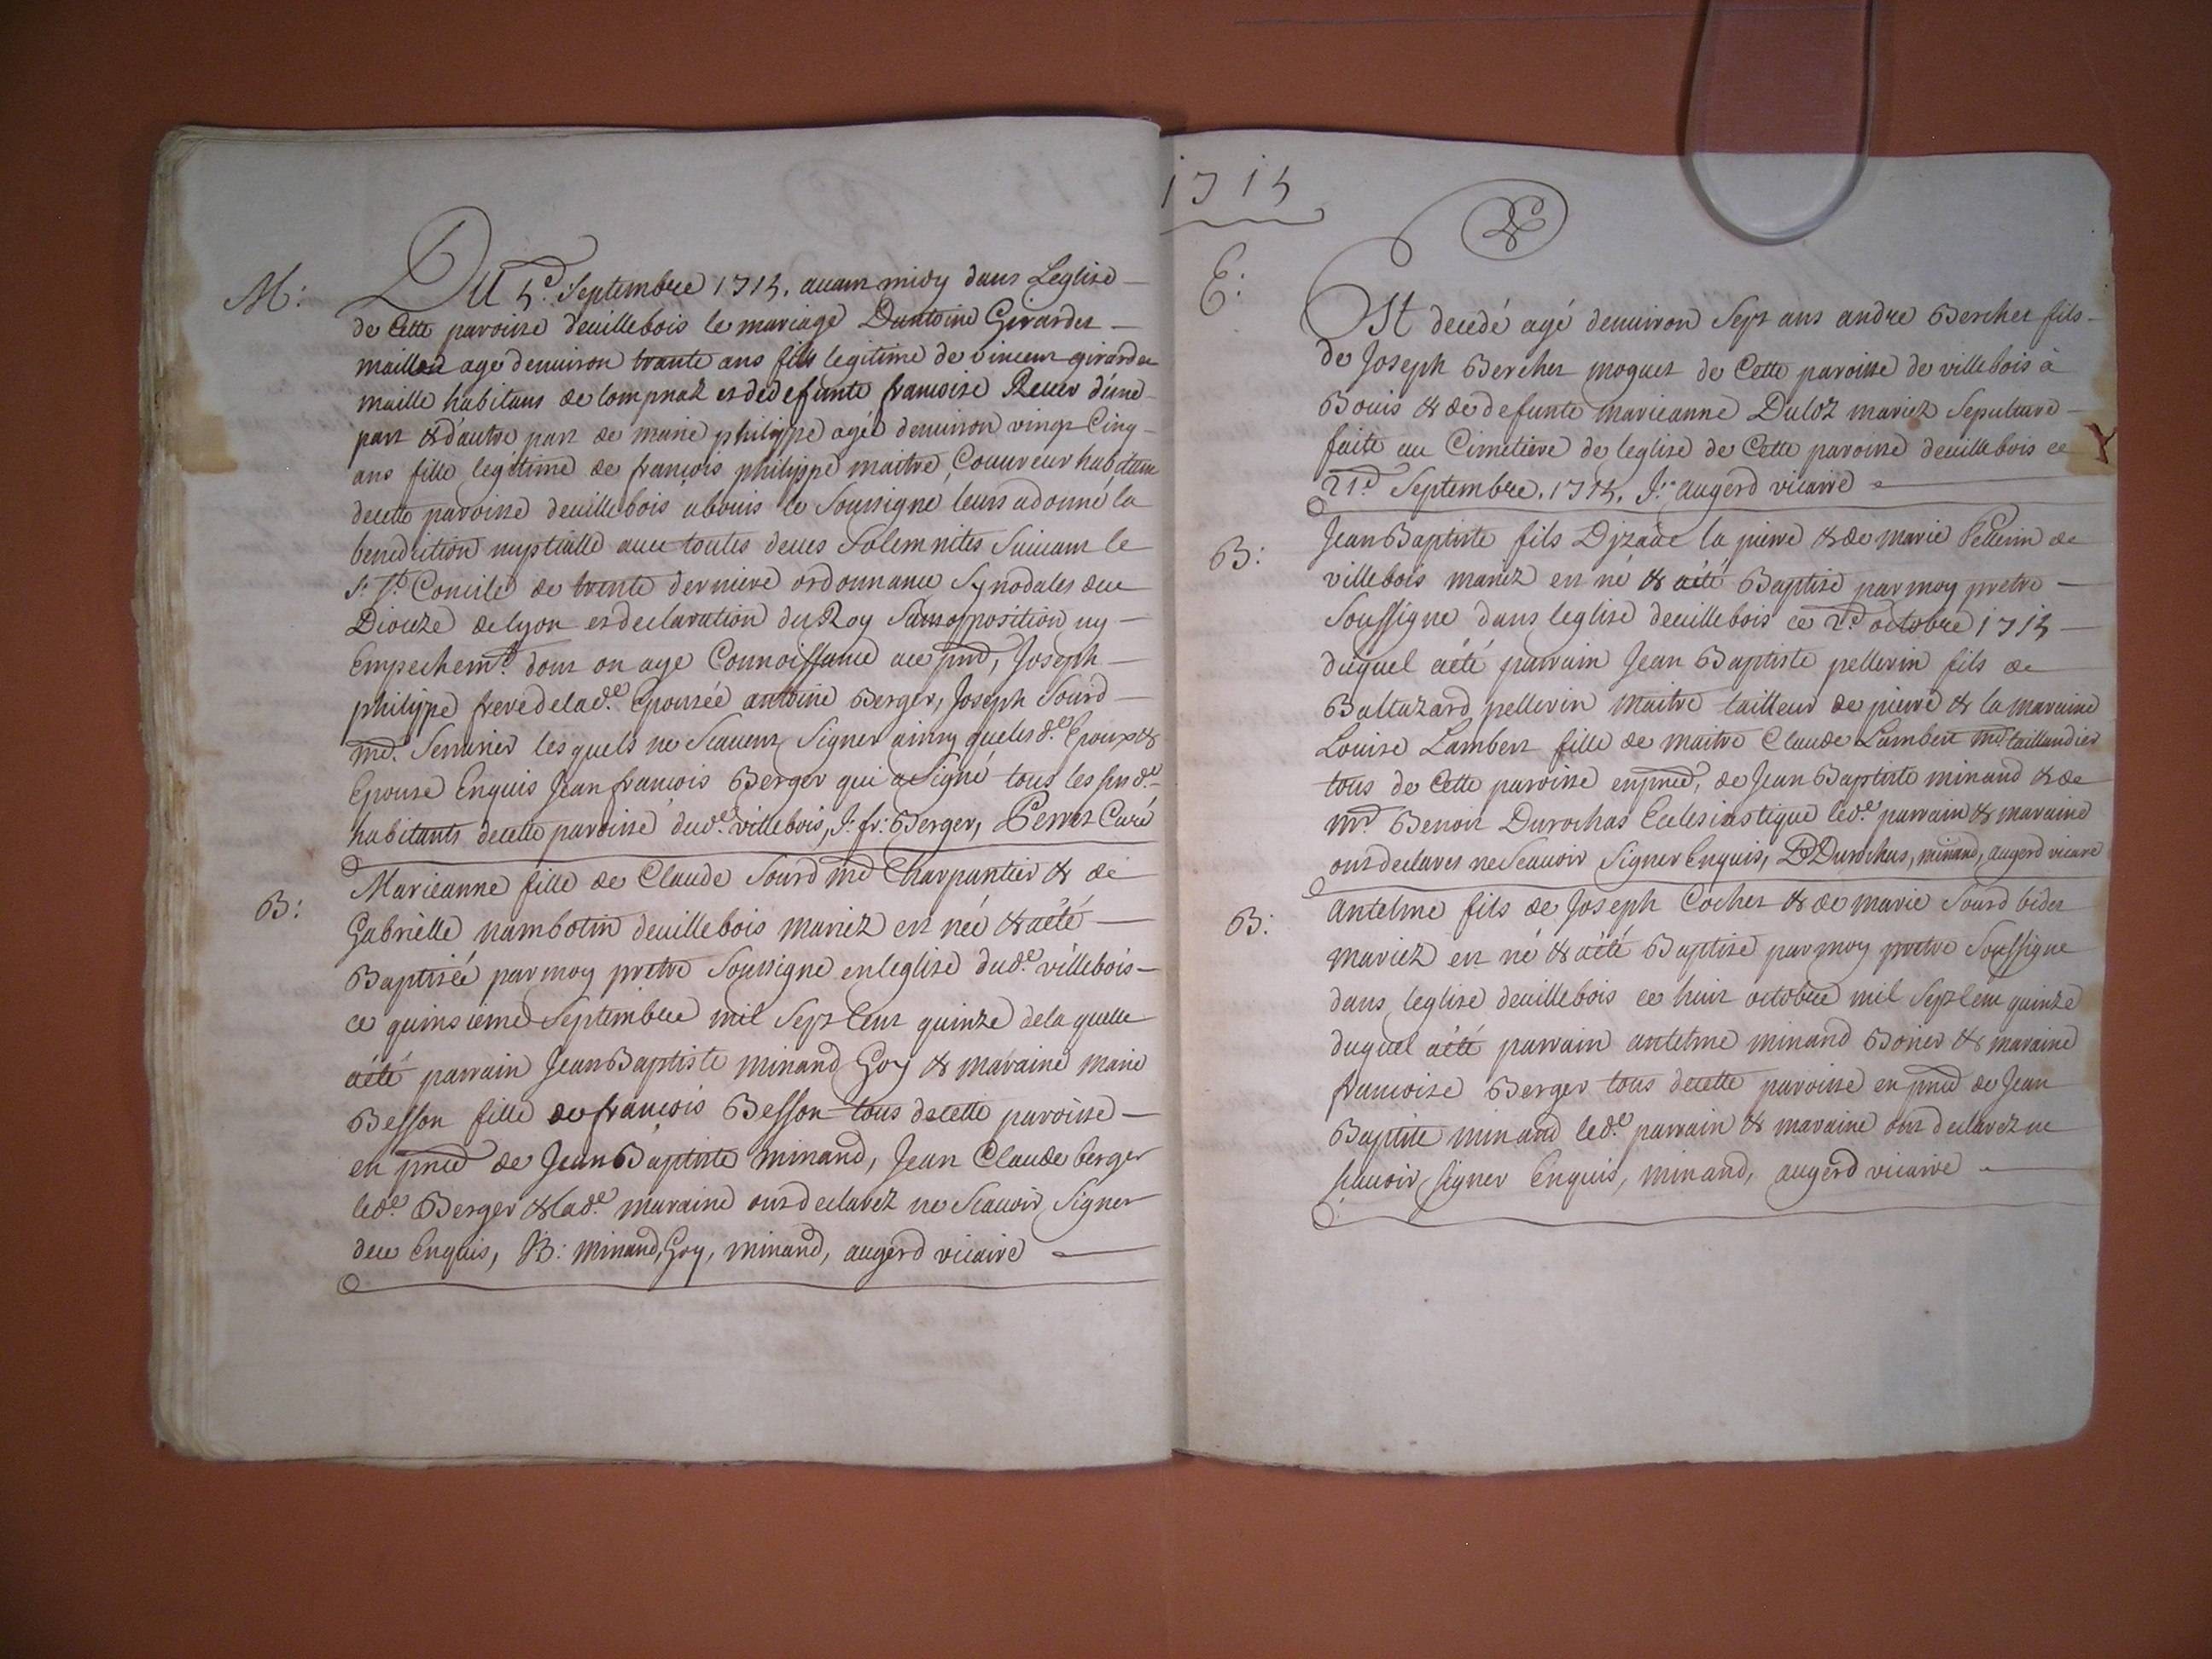 1715
M:
Du 5.e Septembre 1715. auant midy dans Leglise
de Cette paroisse deuillebois le mariage Dantoine Girardet
maillod age denuiron trante ans fils legitime de vincent girardet
maille habitans de lompnaz et dedefunte francoise Reuer d'une
part & d'autre part de marie philippe agée denuiron vingt Cinq
ans fille legitime de francois philippe maitre Couureur habitans
decette paroisse deuillebois abouis le Soussigne leurs adonné la
benediction nuptialle auec toutes deues Solemnites Suiuant le
St. Concile de trente derniere ordonnance Synodales du
Dioceze de lyon et declaration du Roy Sans opposition ny
Empechemt. dont on aye Connoissance ace pnd, Joseph
philippe frere delad.e Epousée antoine Berger, Joseph Sourd
md. Serrurier lesquels ne Scauent Signer ainsy que lesd.e Epoux &
Epouse Enquis Jean francois Berger qui a Signé tous les susd.e
habitants decette paroisse dud.e villebois, J. fr: Berger, Perret Curé
B:
Marieanne fille de Claude Sourd md Charpantier & de
Gabrielle nambotin deuillebois mariez est née & aété
Baptisée par moy pretre Soussigne enleglise dud.e villebois
ce quinsieme Septembre mil Sept Cent quinze dela quelle
aété parrain Jean Baptiste minand Goy & maraine marie
Besson fille de francois Besson tous decette paroisse
en pnce de Jean Baptiste minand, Jean Claude berger
led.e Berger & lad.e maraine ont declarez ne Scauoir Signer
deue Enquis, JB: minand Goy, minand, augerd vicaire
E:
Est decedé agé denuiron Sept ans andre Berchet fils
de Joseph Berchet moguet de Cette paroisse de villebois à
Bouis & de defunte marieanne Duloz mariez Sepulture
faite au Cimetiere de leglise de Cette paroisse deuillebois ce
21.e Septembre. 1715. J: augerd vicaire
B:
Jean Baptiste fils Djzaac la pierre & de marie Pellerin de
villebois mariez est né & aété Baptisé par moy pretre
Soussigne dans leglise deuillebois ce 2.e octobre 1715
duquel aété parrain Jean Baptiste pellerin fils de
Baltazard pellerin maitre tailleur de pierre & la maraine
Louise Lambert fille de maitre Claude Lambert md taillandier
tous de Cette paroisse enpnce, de Jean Baptiste minand & de
mr. Benoit Durochas Eclesiastique led.e parrain & maraine
ont declares ne Scauoir Signer Enquis, Durochas, minand, augerd vicaire
B:
Antelme fils de Joseph Cochet & de marie Sourd bidet
mariez est né & aété Baptise par moy pretre Soussigne
dans leglise deuillebois ce huit octobre mil Sept Cent quinze
duquel aété parrain antelme minand Borier & maraine
francoise Berger tous decette paroisse en pnce de Jean
Baptiste minand led.e parrain & maraine ont declarez ne
Scauoir signer Enquis, minand, augerd vicaire